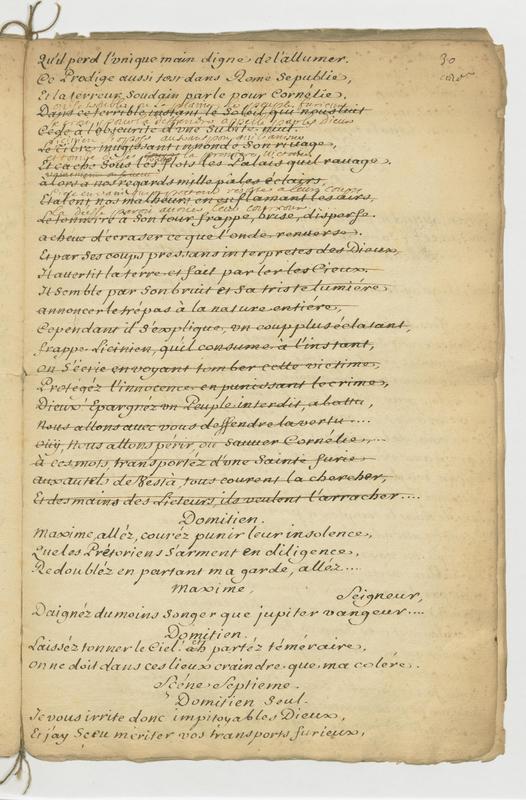 30
Qu'il perd l'unique main digne de l'allumer.
Ce Prodige aussi tost dans Rome se publie,
Et la terreur soudain parle pour Cornélie,
Dans ce terrible instant le Soleil qui nous luit
Cède a l'obscurité d'une subite nuit.
Le Tibre mugissant inonde son rivage,
Et cache sous les flots les Palais qu'il ravage
alors a nos regards mille pâles éclairs,
Etalent nos malheurs en enflamant les airs,
Le tonnerre a son tour frappe, brise, disperse.
acheve d'écraser ce que l'onde renverse.
Et par ses coups pressans interpretes des Dieux,
Il avertit la terre et fait parler les Cieux.
Il semble par son bruit et sa triste lumiére
annoncer le trépas à la nature entiére,
Cependant il s'explique, un coup plus éclatant,
frappe Licinien, qu'il consume à l'instant,
On s'écrie en voyant tomber cette victime,
Protégéz l'innocence en punissant le crime,
Dieux! Epargnéz un Peuple interdit, abattu,
Nous allons avec vous deffendre la vertu....
oüy, Nous allons périr, ou sauver Cornélie,...
à ces mots, transportéz d'une Sainte furie
aux autels de Vesta, tous courent la chercher,
Et des mains des Licteurs, ils veulent l'arracher....
Domitien.
Maxime, alléz, couréz punir leur insolence,
Que les Prétoriens s'arment en diligence,
Redoubléz en partant ma garde, alléz....
Maxime,
Seigneur,
Daignéz du moins songer que jupiter vangeur....
Domitien.
Laisséz tonner le Ciel. ah partéz téméraire,
on ne doit dans ces lieux craindre que ma colére.
Scéne Septieme.
Domitien Seul.
Je vous irrite donc impitoyables Dieux,
Et j'ay sceu mériter vos transports furieux,